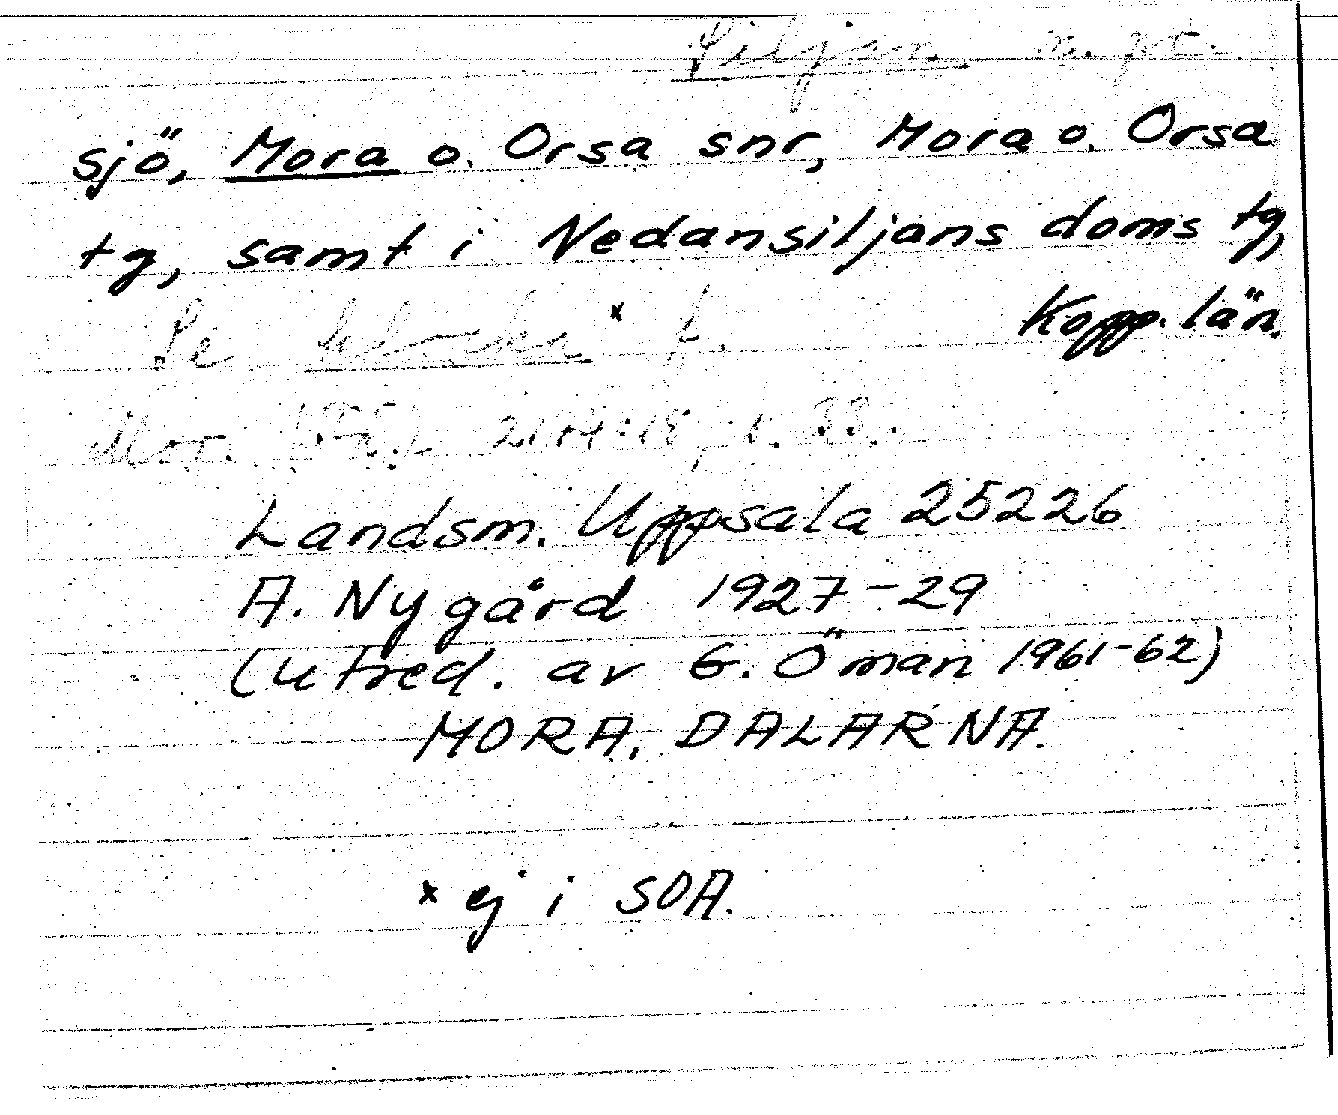 Siljan n. pr.
sjö, Mora o. Orsa snr, Mora o. Orsa
tg, samt i Nedansiljans doms tg,
Kopp. län.
Se klocka x f.
Mor.
Landsm. Uppsala 25226
A. Nygård 1927-29
(utred. av G. Öman 1961-62)
MORA, DALARNA.
x ej i SOA.